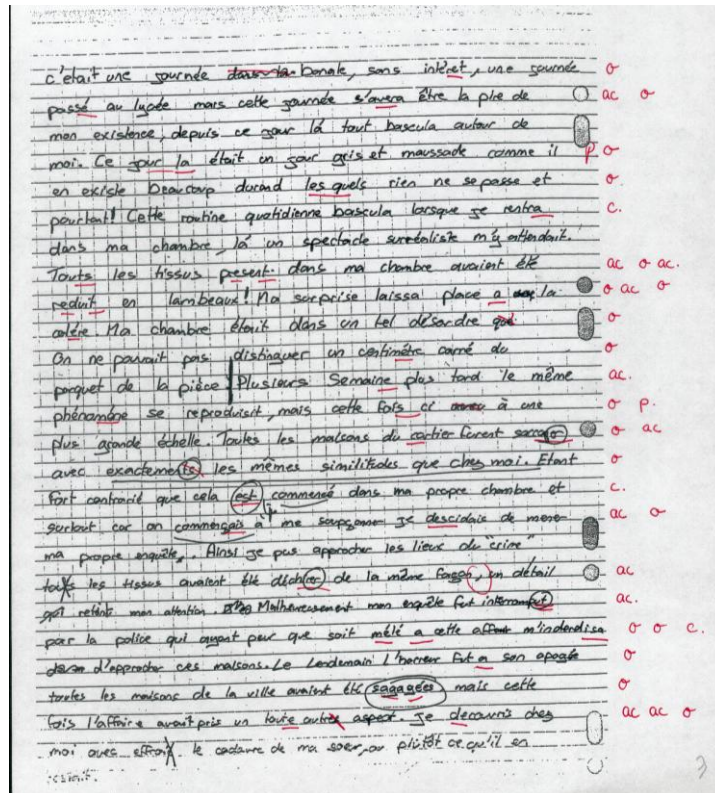 c'était une journée dans la banale, sans intêret, une journée o
passé au lycée mais cette journée s'avera être la pire de ac o
mon existence, depuis ce jour là tout bascula autour de
moi. Ce jour la était un jour gris et maussade comme il p o
en existe beaucoup durand les quels rien ne se passe et o
pourtant! Cette routine quotidienne bascula lorsque je rentra c.
dans ma chambre, là un spectacle surréaliste m'y attendait.
Touts les tissus present dans ma chambre avaient été ac o ac.
reduit en lambeaux! Ma surprise laissa place a la o ac o
colére Ma chambre était dans un tel désordre que o
On ne pouvait pas distinguer un centimétre carré du o
parquet de la pièce Plusieurs Semaine plus tard le même ac.
phénoméne se reproduisit, mais cette fois ci à une o p.
plus grande échelle. Toutes les maisons du cartier furent o ac
avec exactements les mêmes similitudes que chez moi. Etant o
fort contrarié que cela est commencé dans ma propre chambre et c.
surtout car on commençais à me soupçonner je descidais de mener ac o
ma propre enquête. Ainsi je pus approcher les lieux du "crime"
touts les tissus avaient été déchirer de la même façon, un détail ac
qui retint mon attention. Malheureusement mon enquête fut interromput ac.
par la police qui ayant peur que soit mélé a cette affaire m'inderdisa o o c.
d'approcher ces maisons. Le Lendemain l'horreur fut a son apogée o
toutes les maisons de la ville avaient été sagagées mais cette o
fois l'affaire avait pris un toute autres aspect. Je decouvris chez ac ac o
moi avec effroi le cadavre de ma soeur, ou plutôt ce qu'il en
restait. 3